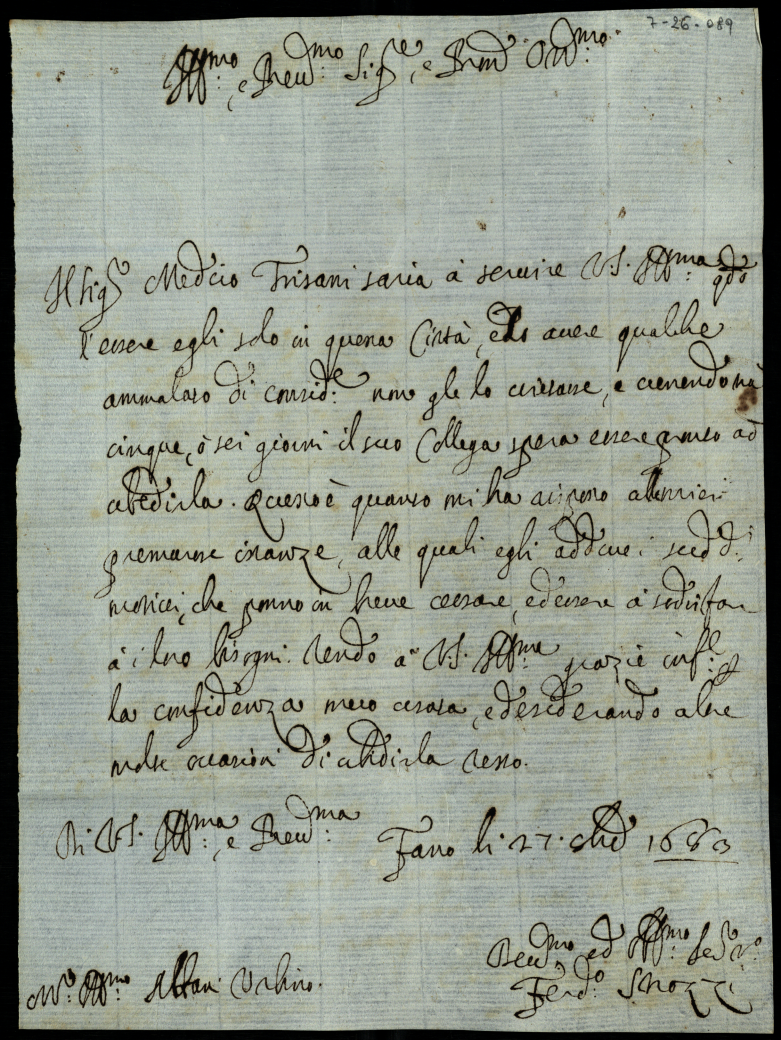 7-26-089
Ill:mo e Rev:mo Sig:re e Pron Oss:mo
Il Sig:r Medico Trisani saria à servire V.S. Ill:ma qdo
l'essere egli solo in questa Città, e lo avere qualche
ammalato di consid:e non gle lo vietasse, e venendo
cinque, ò sei giorni il suo Collega spera essere pronto ad
obedirla. Questo è quanto mi ha risposto alle miei
premurose instanze, alle quali egli adduce i sudd:i
motivi, che ponno in breve cessare, ed essere à sodisfare
à i loro bisogni. Rendo à V.S. Ill:ma grazie inf:
la confidenza meco usata, e desiderando altre
molte occasioni di obedirla resto.
Di V.S. Ill:ma e Rev:ma
Fano li 27 1683
Dev:mo ed Obl:mo Ser:re
Ferd:o
Mr: Ill:mo Albani Urbino.